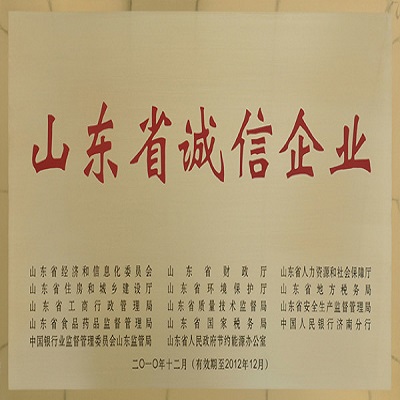 山东省诚信企业
山东省经济和信息化委员会 山东省财政厅 山东省人力资源和社会保障厅
山东省住房和城乡建设厅 山东省环境保护厅 山东省地方税务局
山东省工商行政管理局 山东省质量技术监督局 山东省安全生产监督管理局
山东省食品药品监督管理局 山东省国家税务局 中国人民银行济南分行
中国银行业监督管理委员会山东监管局 山东省人民政府节约能源办公室
二〇一〇年十二月（有效期至2012年12月）